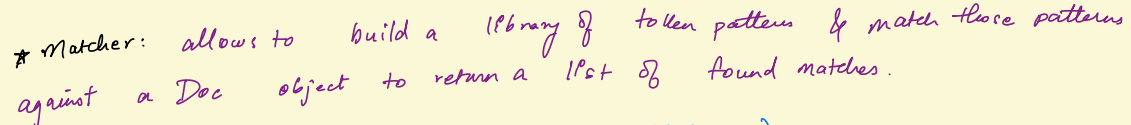 * Matcher: allows to build a library of token patterns & match those patterns
against a Doc object to return a list of found matches.